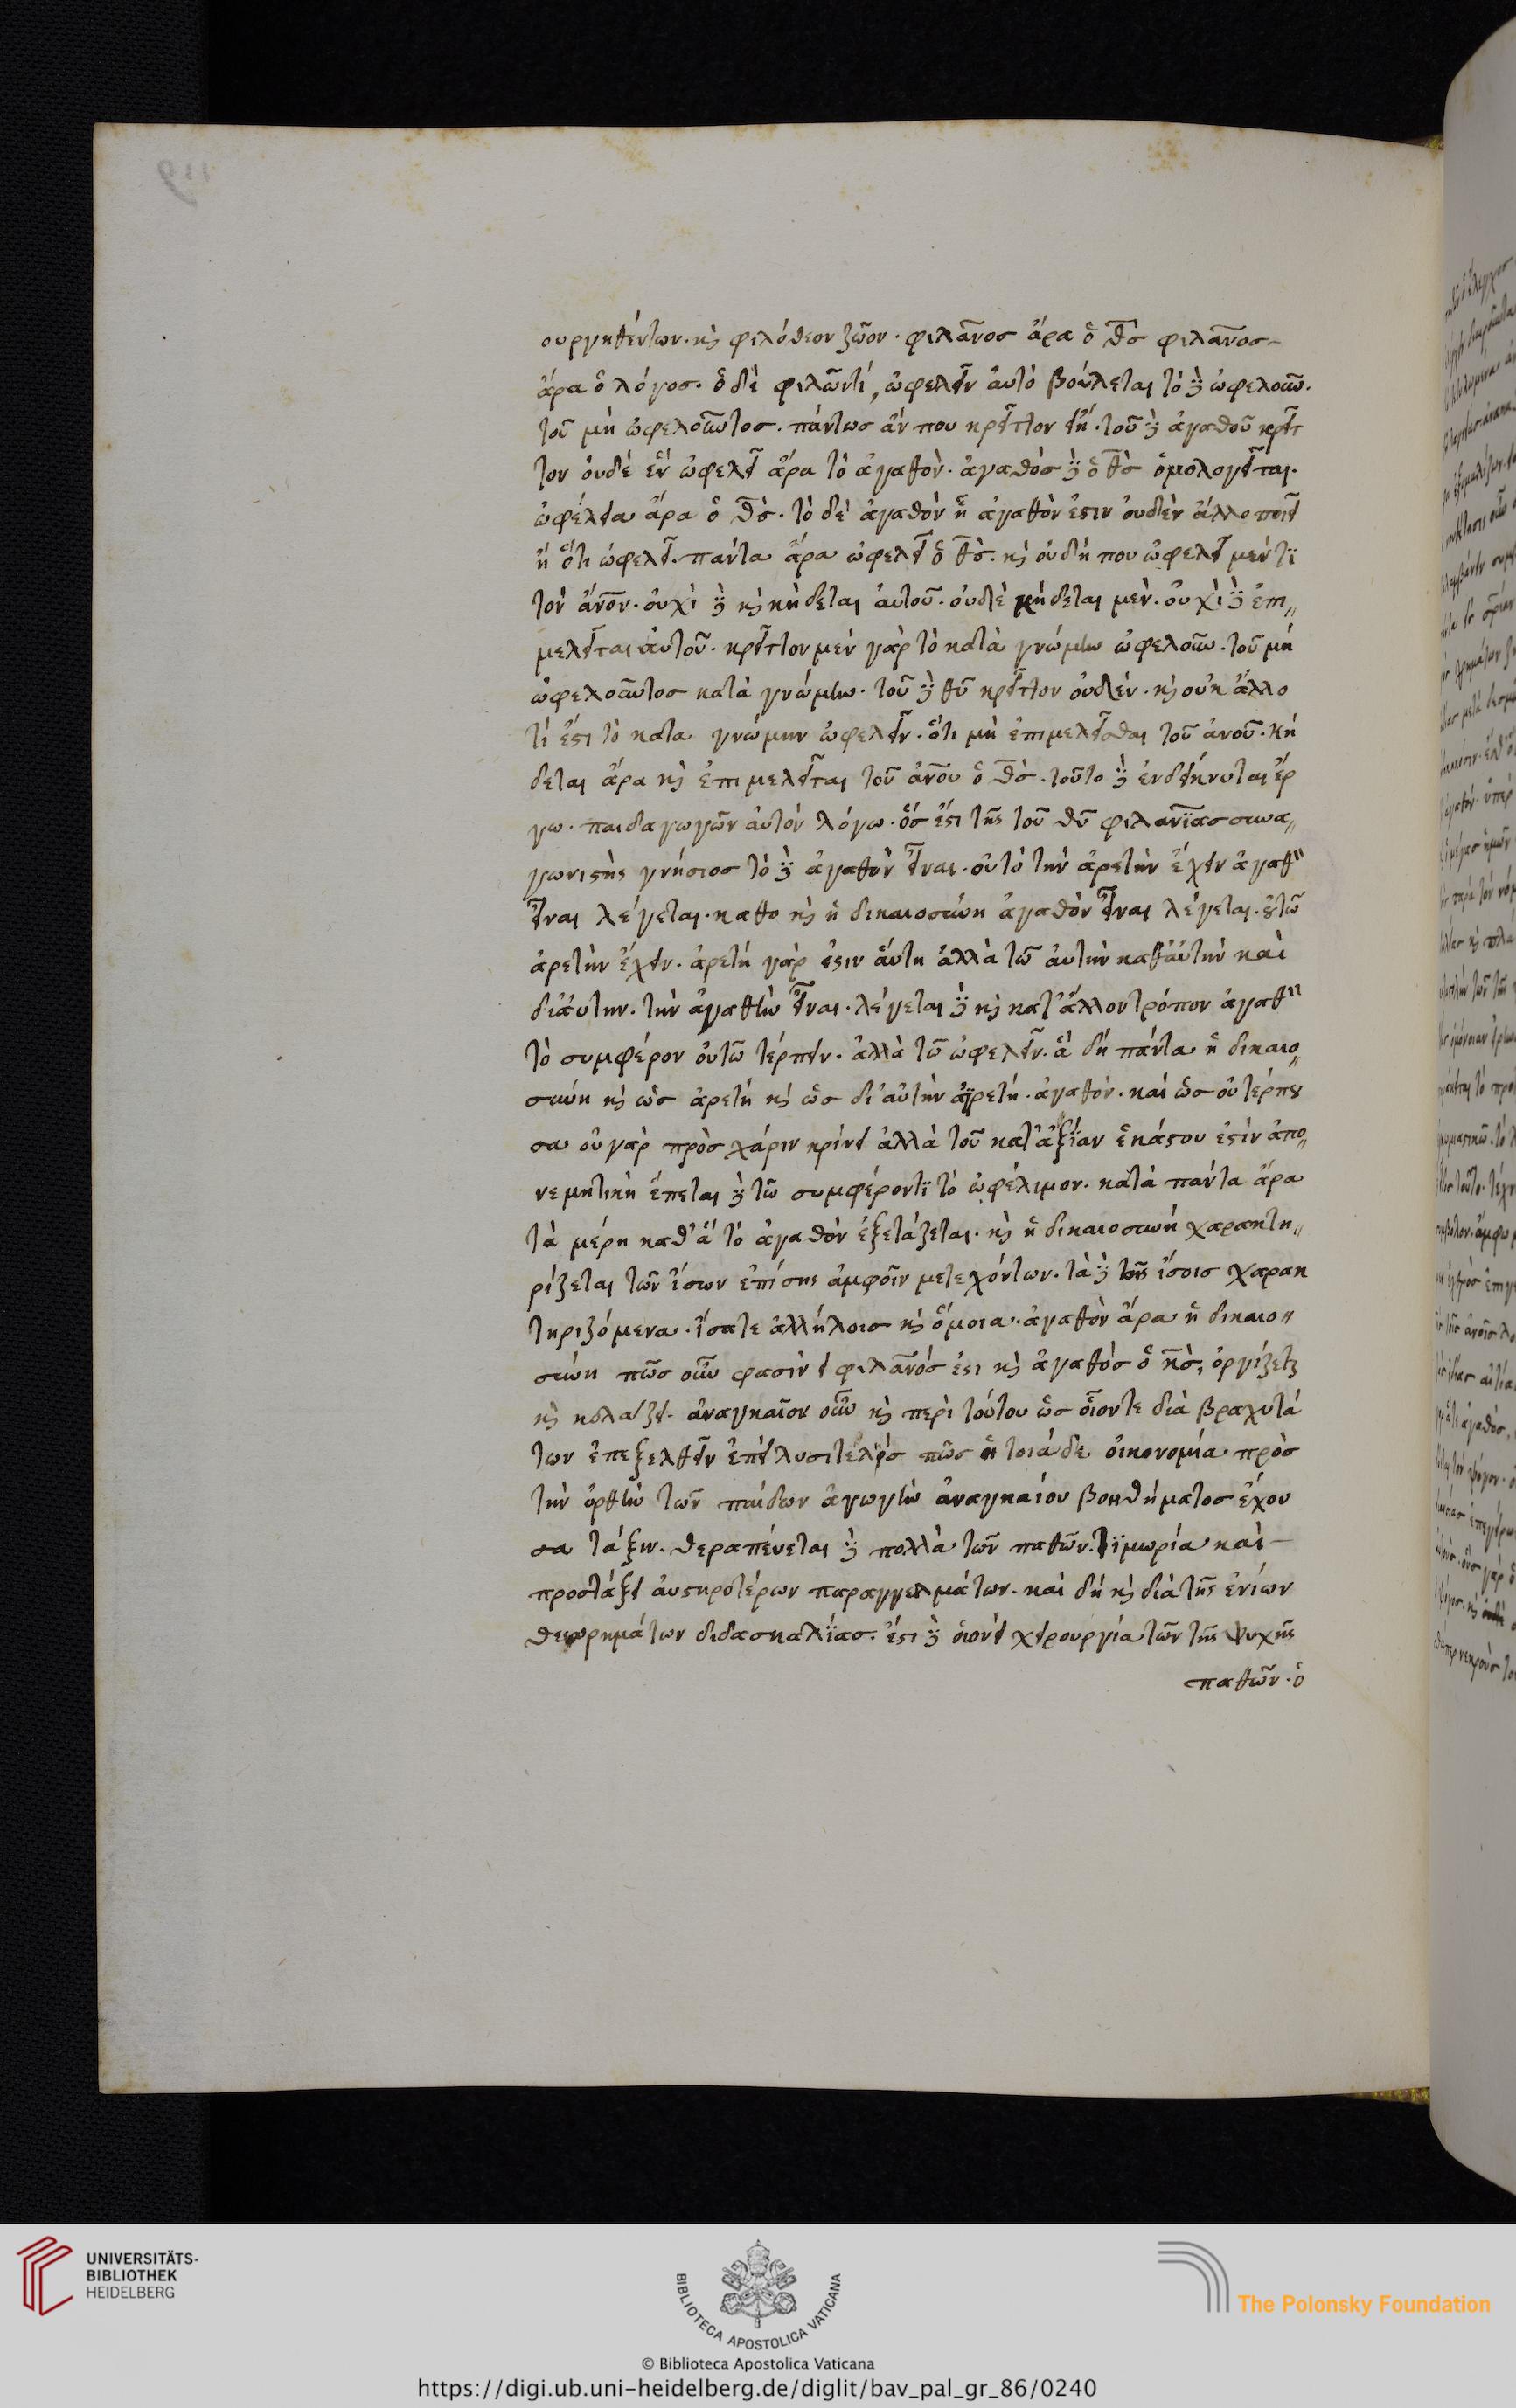 ουργηθέντων. κὶ φιλόθεον ζῶον. φιλᾶνος ἄρα ὁ θς φιλᾶνος
ἄρα ὁ λόγος. ὁ δὲ φιλῶν τί, ὠφελεῖν αὐτὸ βούλεται τὸ δὲ ὠφελοῦν.
τοῦ μὴ ὠφελοῦντος. πάντως ἄν που κρεῖττον εἴη. τοῦ δὲ ἀγαθοῦ κρεῖτ
τον οὐδὲ ἕν ὠφελεῖ ἄρα τὸ ἀγαθόν. ἀγαθὸς δὲ ὁ θς ὁμολογεῖται.
ὠφελεῖ ἄρα ὁ θς. τὸ δὲ ἀγαθὸν ᾗ ἀγαθόν ἐστιν οὐδὲν ἄλλο ποιεῖ
ἢ ὅτι ὠφελεῖ. πάντα ἄρα ὠφελεῖ ὁ θς. κὶ οὐ δή που ὠφελεῖ μέν τϊ
τὸν ἄνον. οὐχὶ δὲ κὶ κήδεται αὐτοῦ. οὐδὲ κήδεται μὲν. οὐχὶ δὲ ἐπι
μελεῖται αὐτοῦ. κρεῖττον μὲν γὰρ τὸ κατὰ γνώμην ὠφελοῦν. τοῦ μὴ
ὠφελοῦντος κατὰ γνώμην. τοῦ δὲ θυ κρεῖττον οὐδέν. κὶ οὐκ ἄλλο
τί ἐστι τὸ κατα γνώμην ὠφελεῖν. ὅτι μὴ ἐπιμελεῖσθαι τοῦ ἀνου. κή
δεται ἄρα κὶ ἐπιμελεῖται τοῦ ἀνου ὁ θς. τοῦτο δὲ ἐνδείκνυται ἔρ
γω. παιδαγωγῶν αὐτόν λόγω. ὅς ἐστι τῆς τοῦ θυ φιλανϊας συνα
γωνιστὴς γνήσιος τὸ δὲ ἀγαθὸν εἶναι. οὐ τὸ τὴν ἀρετὴν ἔχειν ἀγαθ
εἶναι λέγεται. καθο κὶ ἡ δικαιοσύνη ἀγαθὸν εἶναι λέγεται. οὐ τῶ
ἀρετὴν ἔχειν. ἀρετὴ γάρ ἐστιν αὕτη ἀλλὰ τῶ αὐτὴν καθ' αὑτὴν καὶ
δι' αὑτην. τὴν ἀγαθὴν εἶναι. λέγεται δὲ κὶ κατ' ἄλλον τρόπον ἀγαθ
τὸ συμφέρον οὐ τῶ τέρπειν. ἀλλὰ τῶ ὠφελεῖν. ἃ δὴ πάντα ἡ δικαιο
σύνη κὶ ὡς ἀρετὴ κὶ ὡς δι' αὑτὴν αἱρετή. ἀγαθόν. καὶ ὡς οὐ τέρπου
σα οὐ γὰρ πρὸς χάριν κρίνει ἀλλὰ τοῦ κατ' ἀξίαν ἑκάστου ἐστὶν ἀπο
νεμητικὴ ἕπεται δὲ τῶ συμφέροντϊ τὸ ὠφέλιμον. κατὰ πάντα ἄρα
τὰ μέρη καθ' ἃ τὸ ἀγαθὸν ἐξετάζεται. κὶ ἡ δικαιοσυνή χαρακτη
ρίζεται τῶν ἴσων ἐπίσης ἀμφοῖν μετεχόντων. τὰ δὲ τοῖς ἴσοις χαρακ
τηριζόμενα. ἴσα τε ἀλλήλοις κὶ ὅμοια. ἀγαθὸν ἄρα ἡ δικαιο
σύνη πῶς οὖν φασὶν εἰ φιλανός ἐστι κὶ ἀγαθὸς ὁ κς, ὀργίζεται
κὶ κολάζει. ἀναγκαῖον οὖν κὶ περὶ τούτου ὡς οἷόν τε διὰ βραχυτά
των ἐπεξελθεῖν ἐπεὶ λυσιτελὴς πῶς ἡ τοιάδε οἰκονομία πρὸς
τὴν ὀρθὴν τῶν παίδων ἀγωγὴν ἀναγκαίου βοηθήματος ἔχου
σα τάξιν. θεραπεύεται δὲ πολλὰ τῶν παθῶν. τϊμωρία καὶ
προστάξει αὐστηροτέρων παραγγελμάτων. καὶ δὴ κὶ διὰ τῆς ἐνίων
θεωρημάτων διδασκαλΐας. ἔστι δὲ οἱονεὶ χειρουργία τῶν τῆς ψυχῆς
παθῶν. ὁ
UNIVERSITÄTS-
BIBLIOTHEK
HEIDELBERG
BIBLIOTECA APOSTOLICA VATICANA
The Polonsky Foundation
© Biblioteca Apostolica Vaticana
https://digi.ub.uni-heidelberg.de/diglit/bav_pal_gr_86/0240